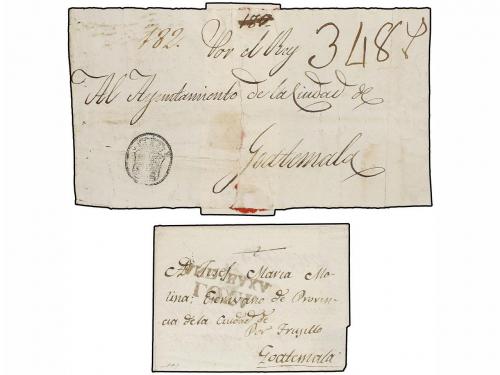 182. Por el Rey 348
Al Ayuntamiento de la Ciudad de
Goatemala
Jph. Maria Mo-
lina; Escrivano de Provin-
cia de la Ciudad de
Por Truxillo
Goatemala